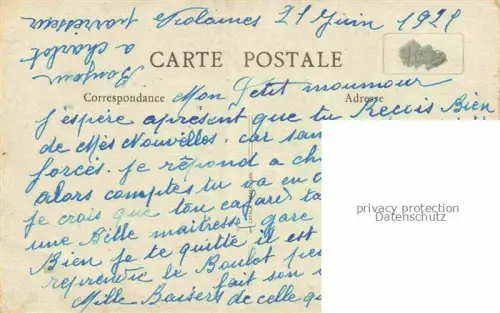 Violaines 21 Juin 1921
Bonjour
a charlot
paresseux
CARTE POSTALE
Correspondance
Adresse
Mon Petit moumour
J'espère apresent que tu Recois Bien
de Mes Nouvelles. car san
forces. Je répond a ch
alors comptes tu va en
je crois que ton cafard ta
une Bèlle maitresse gare
Bien je te quitte il est
reprendre le Boulot
fait son
Mille Baisers de celle qu
privacy protection
Datenschutz